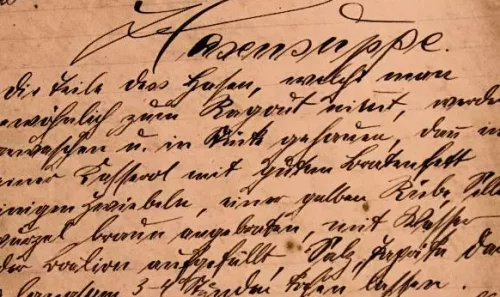 Hasensuppe.
Die Teile des Hasen, welche man
gewöhnlich zum Ragout nimmt, werden
gewaschen u. in Stücke gehauen, dann in
einer Casserol mit gutem Bratenfett
einigen Zwiebeln, einer gelben Rübe, Selle
wurzel braun angebraten, mit Wasser
oder Boulion aufgefüllt, Salz,
langsam 3-4 Stunden kochen lassen.